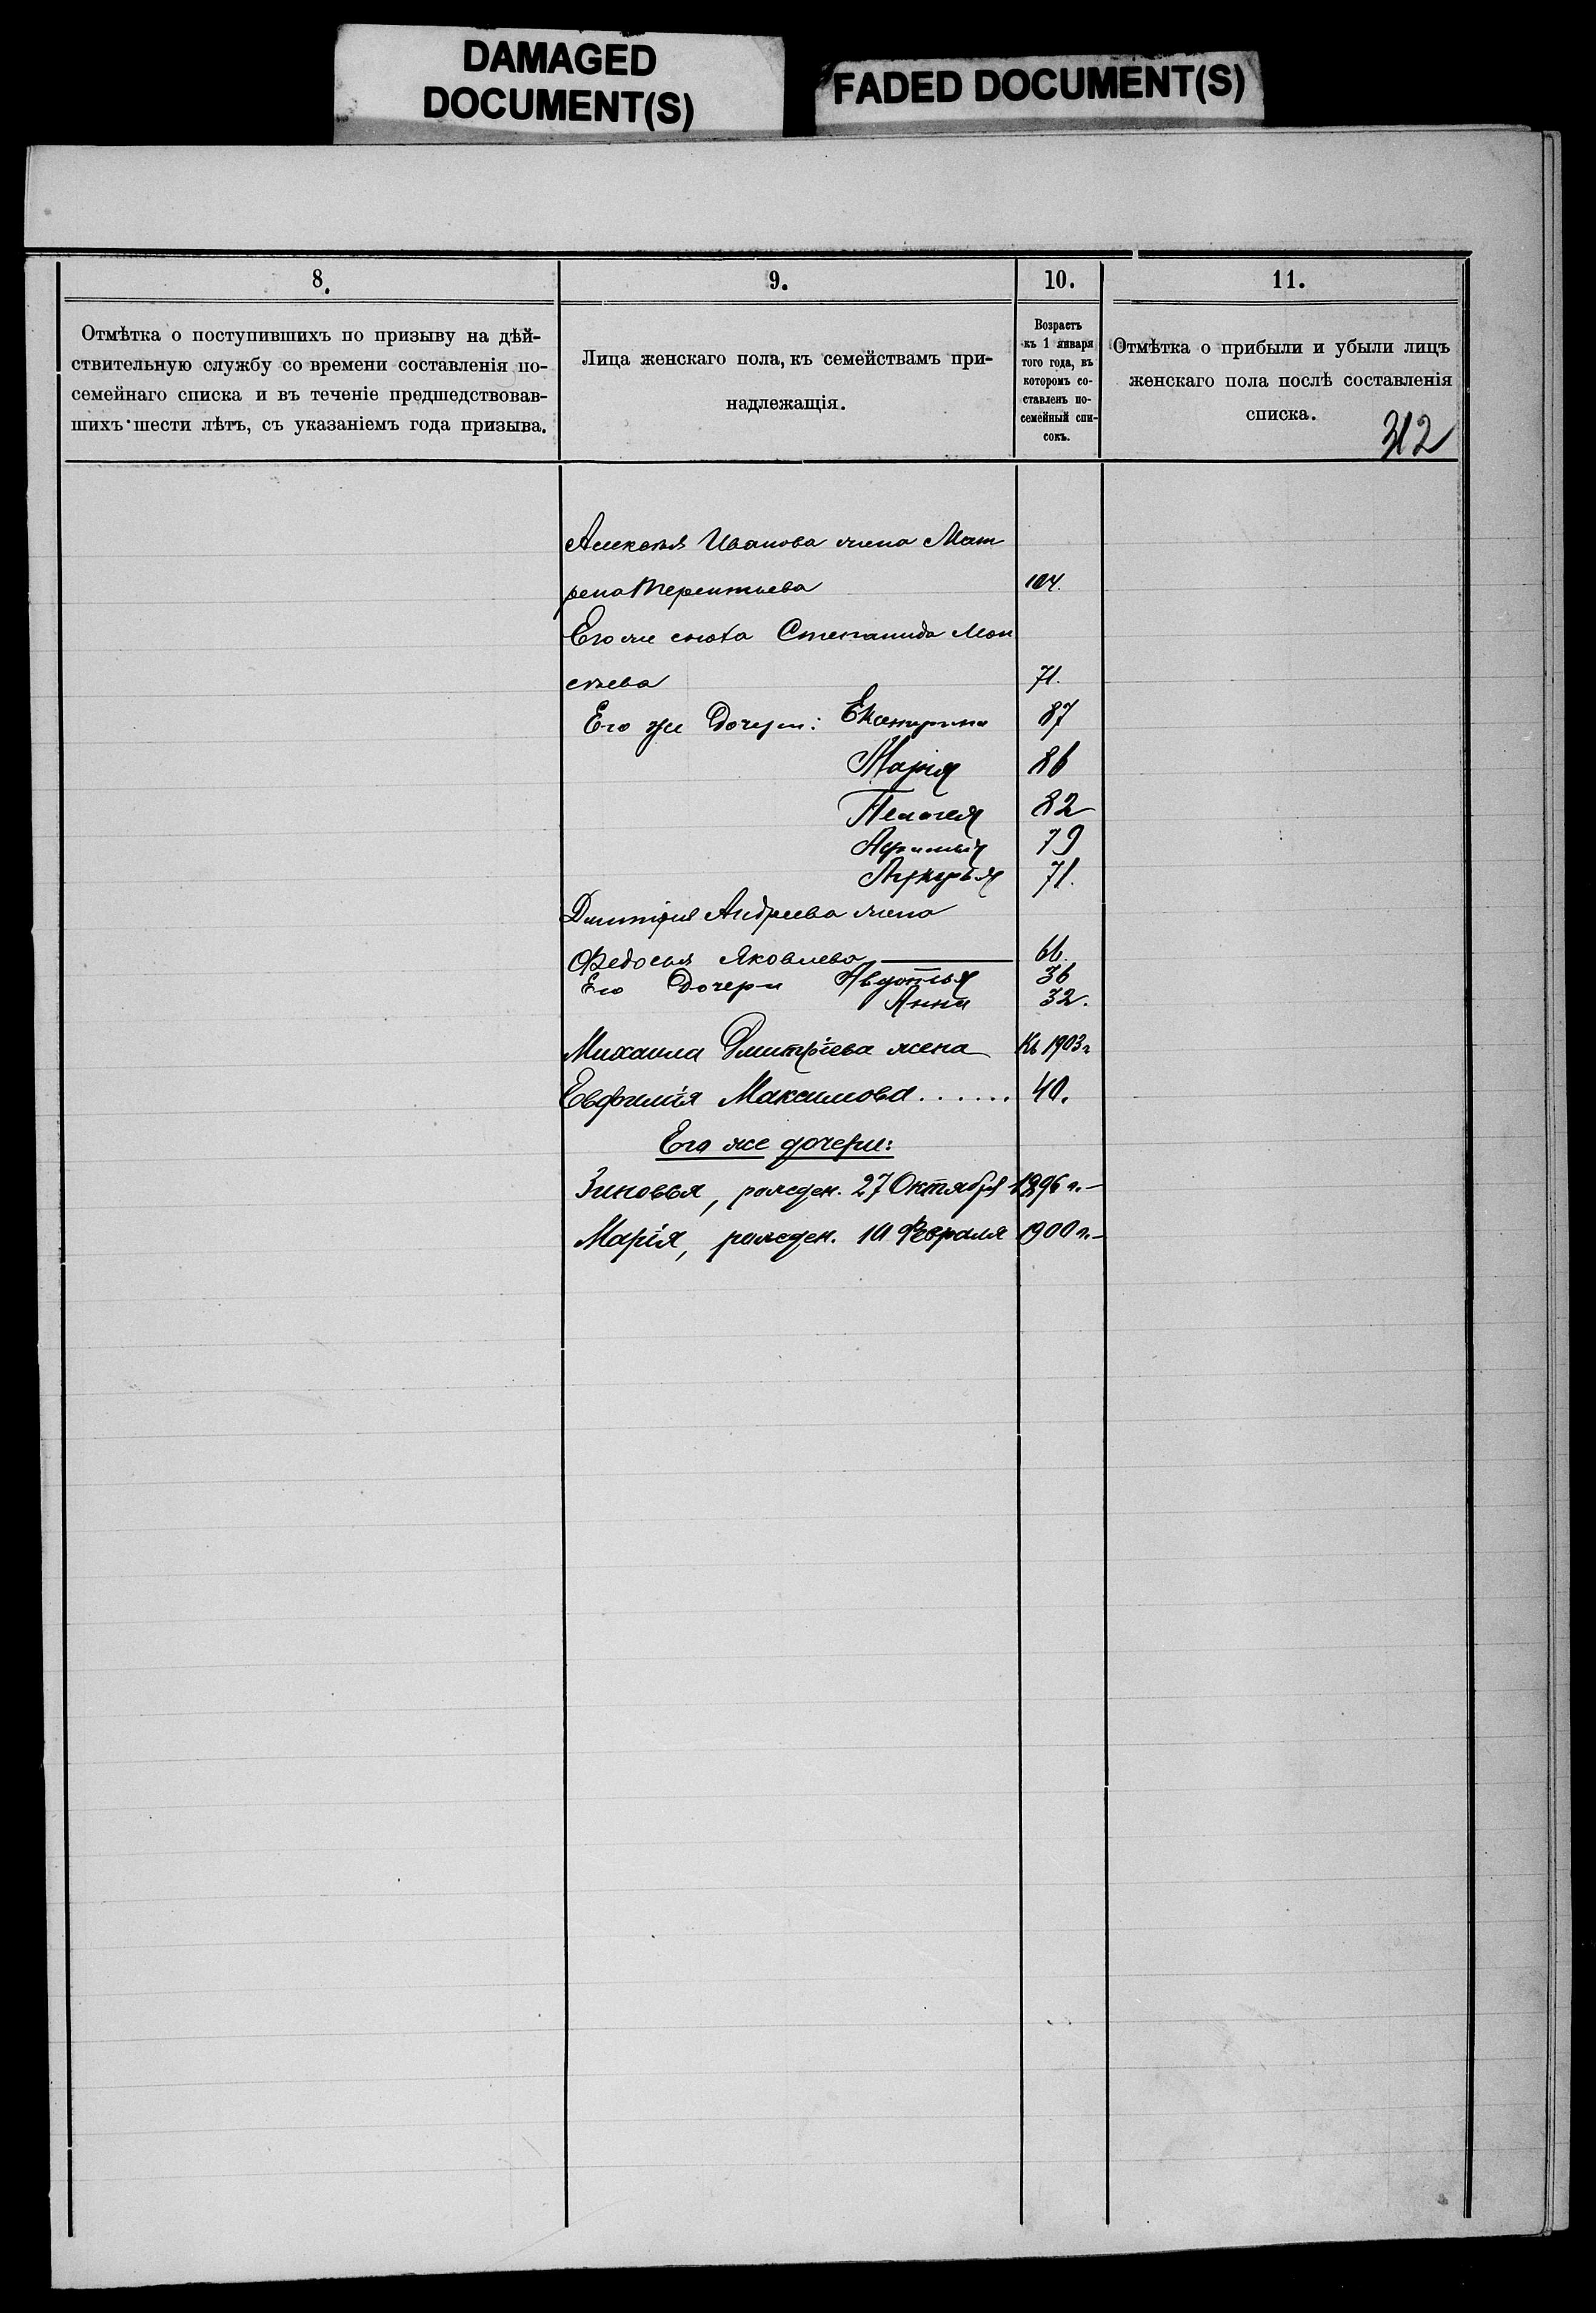 DAMAGED
DOCUMENT(S)
FADED DOCUMENT(S)
8.
9.
10.
11.
Отмѣтка о поступившихъ по призыву на дѣй-
ствительную службу со времени составленія по-
семейнаго списка и въ теченіе предшедствовав-
шихъ шести лѣтъ, съ указаніемъ года призыва.
Лица женскаго пола, къ семействамъ при-
надлежащія.
Возрастъ
къ 1 января
того года, въ
которомъ со-
ставленъ по-
семейный спи-
сокъ.
Отмѣтка о прибыли и убыли лицъ
женскаго пола послѣ составленія
списка.
312
Алексѣя Иванова жена Мат
рена Терентьева 104.
Его же сноха Степанида Мои
сѣева 71.
Его же Дочери: Екатерина 87
Марія 86
Пелагея 82
79
71.
Дмитрія Андреева жена
Федосья Яковлева 66.
Его Дочери Авдотья 36
Анна 32.
Михаила Дмитріева жена Къ 1903 г
Евфимія Максимова...... 40.
Его же дочери:
Зиновья, рожден. 27 Октября 1896 г.-
Марія, рожден. 10 Февраля 1900 г.-